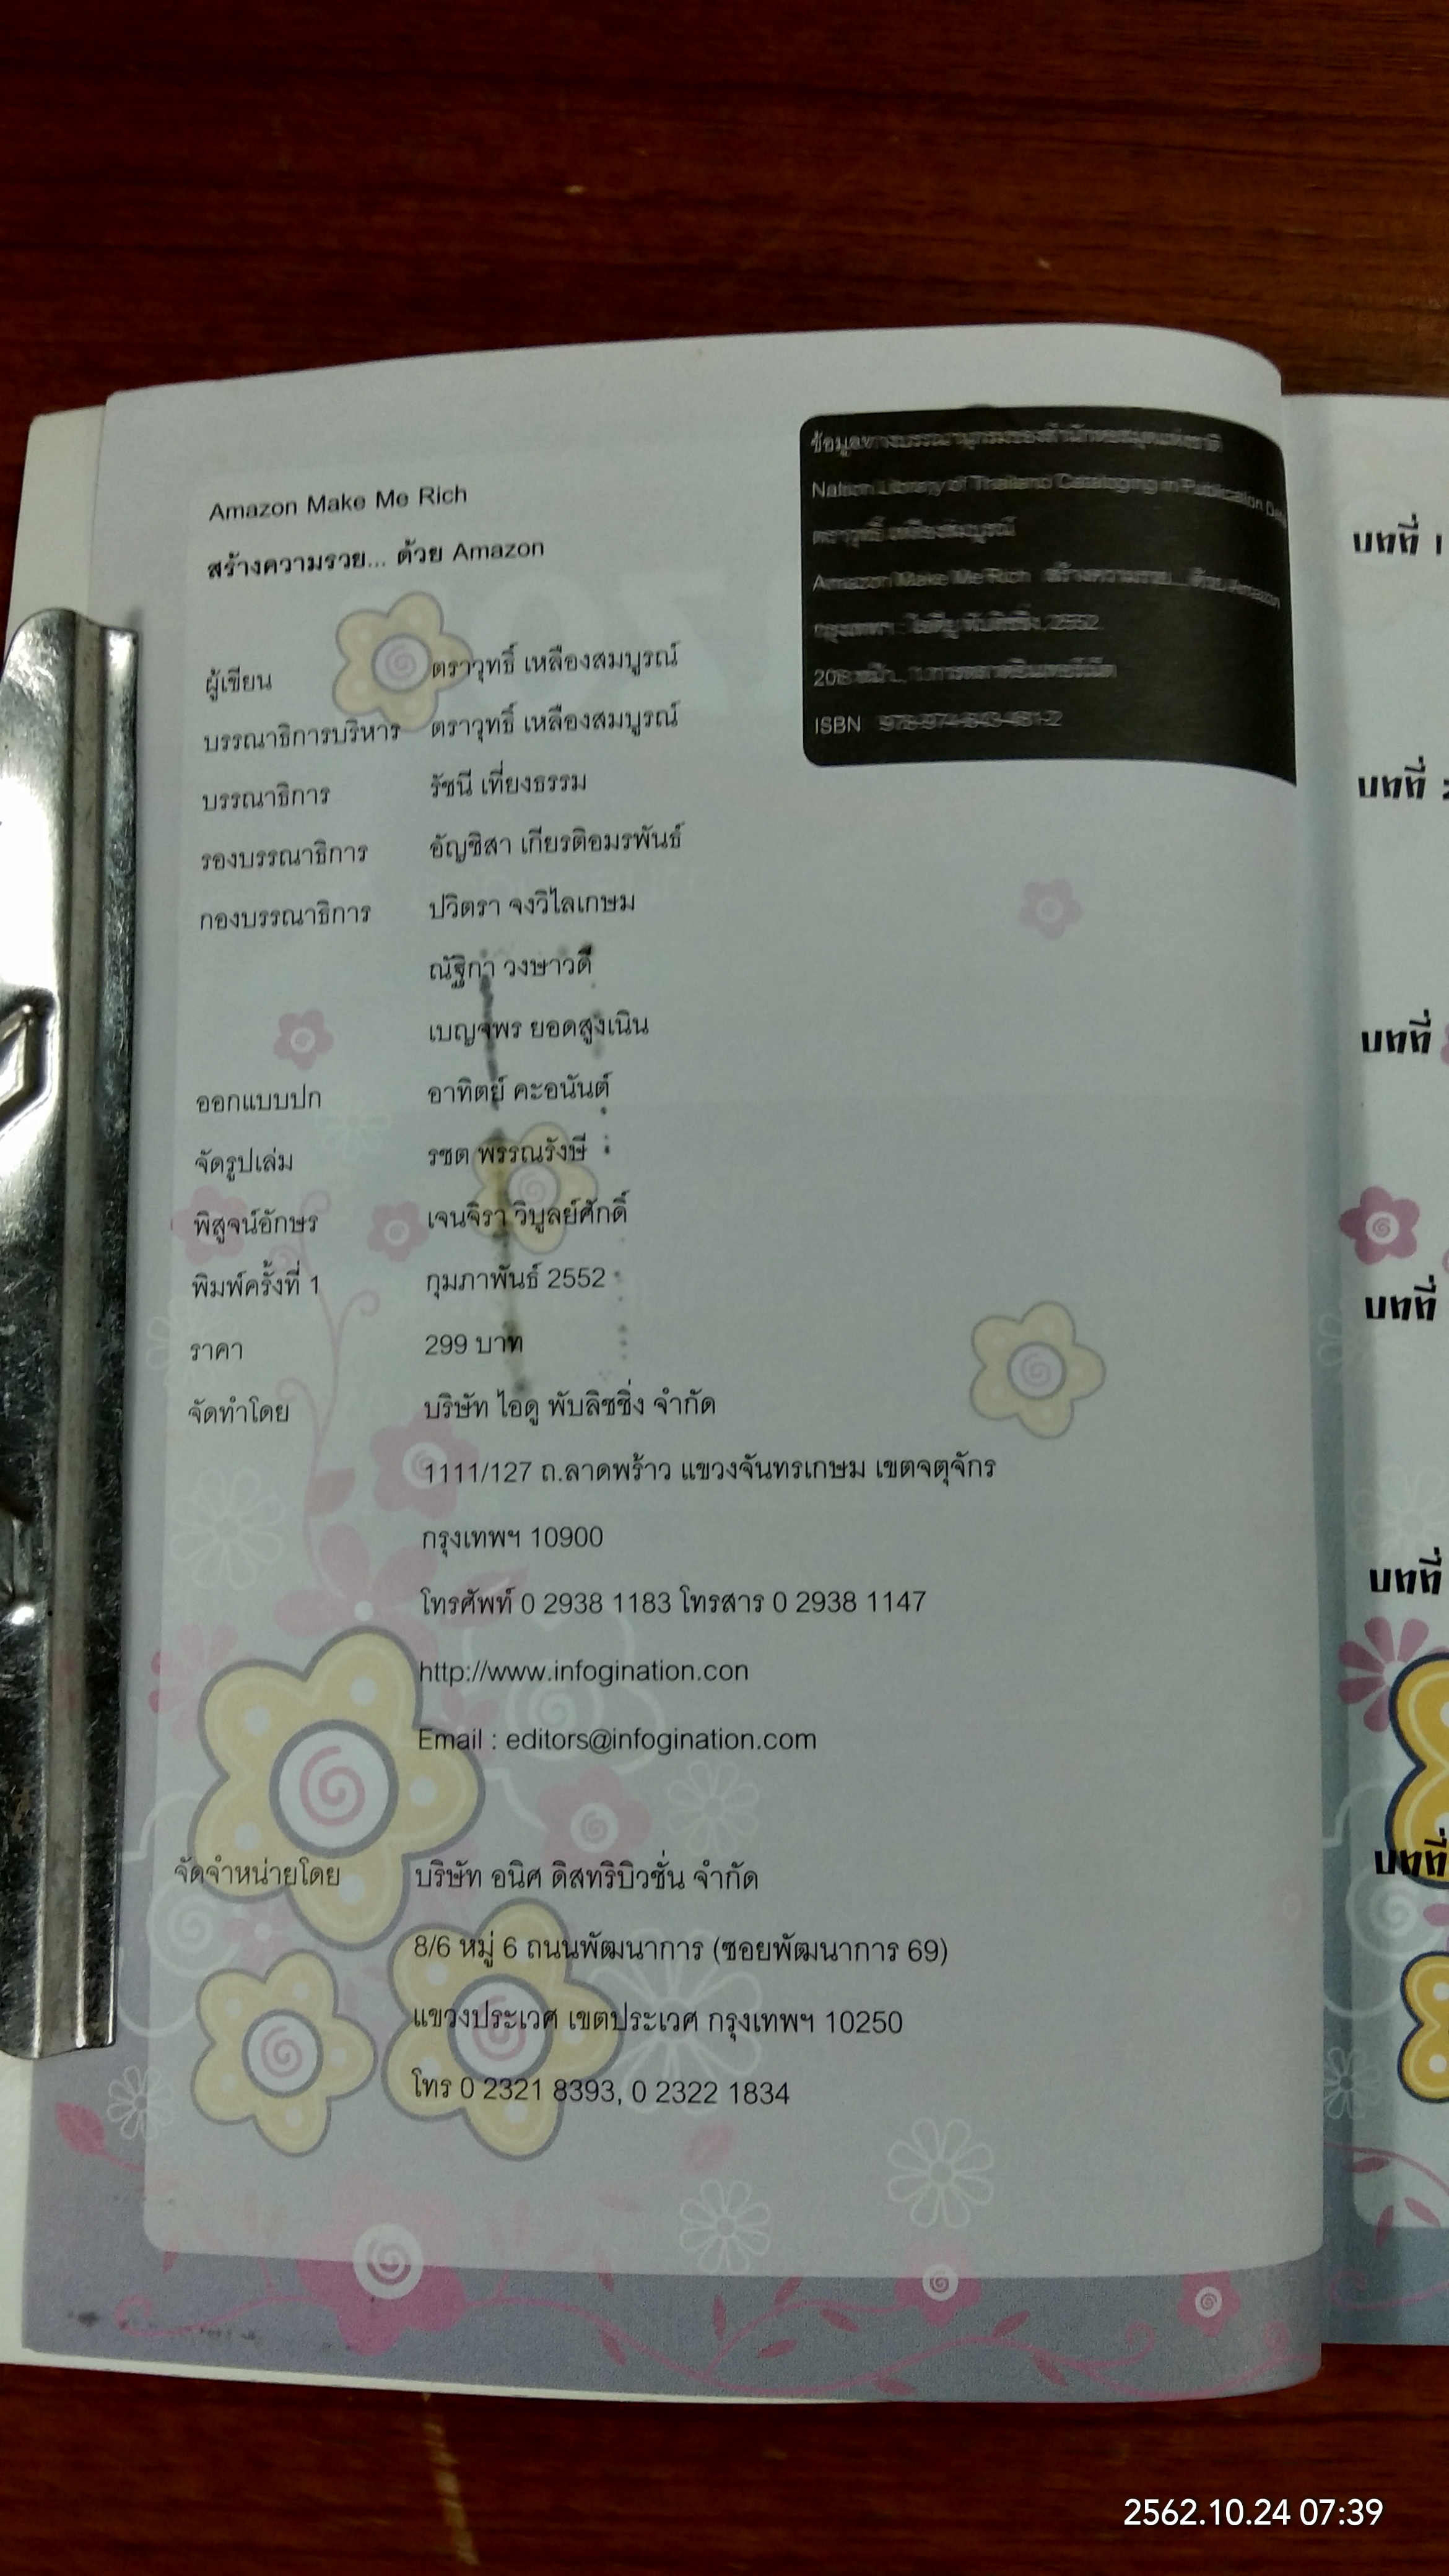 Amazon Make Me Rich
สร้างความรวย... ด้วย Amazon
ผู้เขียน ตราวุทธิ์ เหลืองสมบูรณ์
บรรณาธิการบริหาร ตราวุทธิ์ เหลืองสมบูรณ์
บรรณาธิการ รัชนี เที่ยงธรรม
รองบรรณาธิการ อัญชิสา เกียรติอมรพันธ์
กองบรรณาธิการ ปวิตรา จงวิไลเกษม
ณัฐิกา วงษาวดี
เบญจพร ยอดสูงเนิน
ออกแบบปก อาทิตย์ คะอนันต์
จัดรูปเล่ม รชต พรรณรังษี
พิสูจน์อักษร เจนจิรา วิบูลย์ศักดิ์
พิมพ์ครั้งที่ 1 กุมภาพันธ์ 2552
ราคา 299 บาท
จัดทำโดย บริษัท ไอดู พับลิชชิ่ง จำกัด
1111/127 ถ.ลาดพร้าว แขวงจันทรเกษม เขตจตุจักร
กรุงเทพฯ 10900
โทรศัพท์ 0 2938 1183 โทรสาร 0 2938 1147
http://www.infogination.con
Email : editors@infogination.com
จัดจำหน่ายโดย บริษัท อนิศ ดิสทริบิวชั่น จำกัด
8/6 หมู่ 6 ถนนพัฒนาการ (ซอยพัฒนาการ 69)
แขวงประเวศ เขตประเวศ กรุงเทพฯ 10250
โทร 0 2321 8393, 0 2322 1834
ข้อมูลทางบรรณานุกรมของสำนักหอสมุดแห่งชาติ
Nation Library of Thailand Cataloging in Publication Data
ตราวุทธิ์ เหลืองสมบูรณ์
Amazon Make Me Rich สร้างความรวย... ด้วย Amazon
กรุงเทพฯ : ไอดีบู พับลิชชิ่ง, 2552.
208 หน้า., 1.การตลาดอินเทอร์เน็ต
ISBN
บทที่ 1
บทที่
บทที่
บทที่
บทที่
บทที่
2562.10.24 07:39